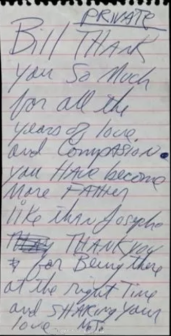 PRIVATE
Bill THANK
you So Much
for all the
years of love.
and CompASION.
you HAve become
More FATHER
like than Joseph
THANK you
& for Being there
at the right Time
and SHAring your
love.